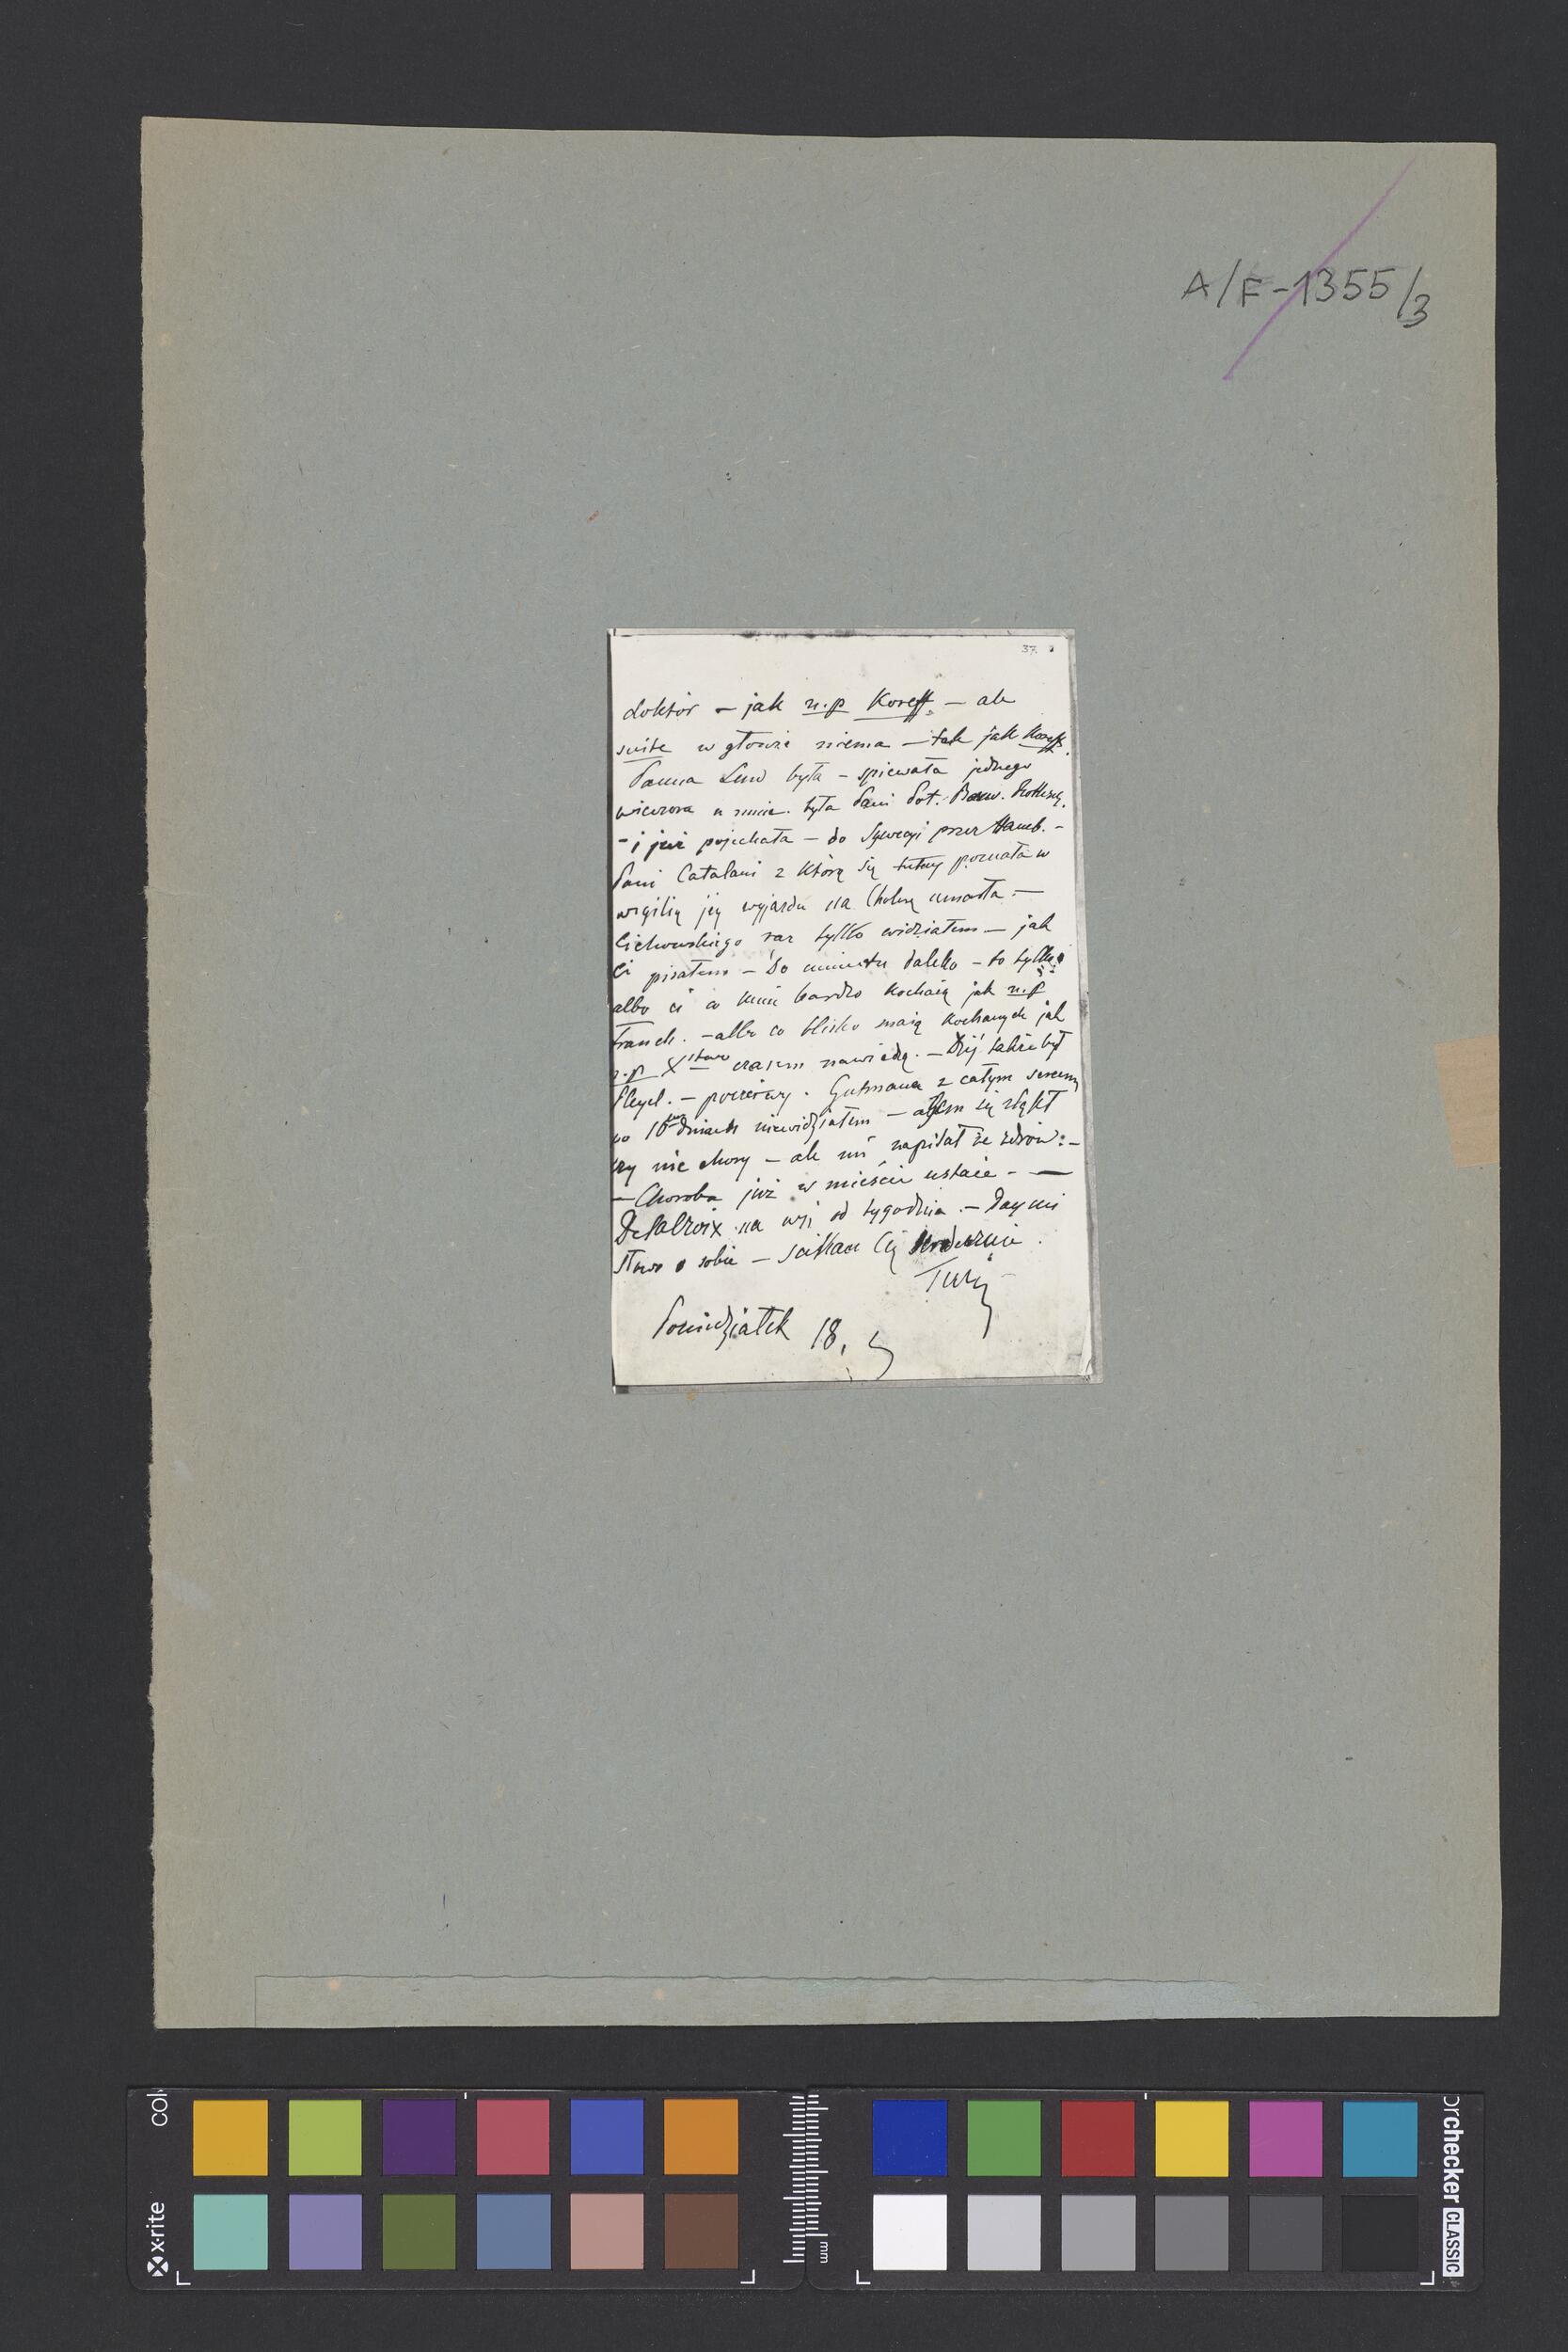 A/F-1355/3
37.
doktór – jak n.p Koreff. – ale
suite w głowie niema – tak jak Koreff.
Panna Lind była – spiewała jednego
wieczora u mnie. była Pani Pot. Beauv. Rothsch.
– i już pojechała – do Szwecyi przez Hamb. –
Pani Catalani z którą się tutay poznała w
wigilią jey wyjazdu na Cholerę umarła. –
Cichowskiego raz tylko widziałem – jak
Ci pisałem – Do miasta daleko – to tylko
albo ci co mnie bardzo kochaią jak n.p
Franch. – albo co blisko maią kochanych jak
n.p X czasem nawiedzą. – Dziś także był
Pleyel. – poczciwy. Gutmana z całym sercem
po 10 dniach niewidziałem – ażem się zląkł
czy nie chory – ale mi napisał że zdrów: –
– Choroba już w mieście ustaie – –
Delacroix na wsi od tygodnia. – Day mi
słowo o sobie – sciskam Cię serdecznie.
Twój
Poniedziałek 18.
x-rite
colorchecker CLASSIC
mm